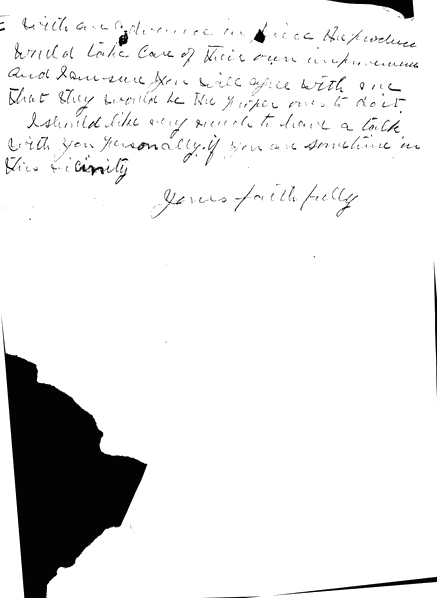 with an advance in price the producer
would take care of their own improvements
and I am sure you will agree with me
that they would be the proper ones to do it.
I should like very much to have a talk
with you personally, if you are sometime in
this vicinity
Yours faithfully